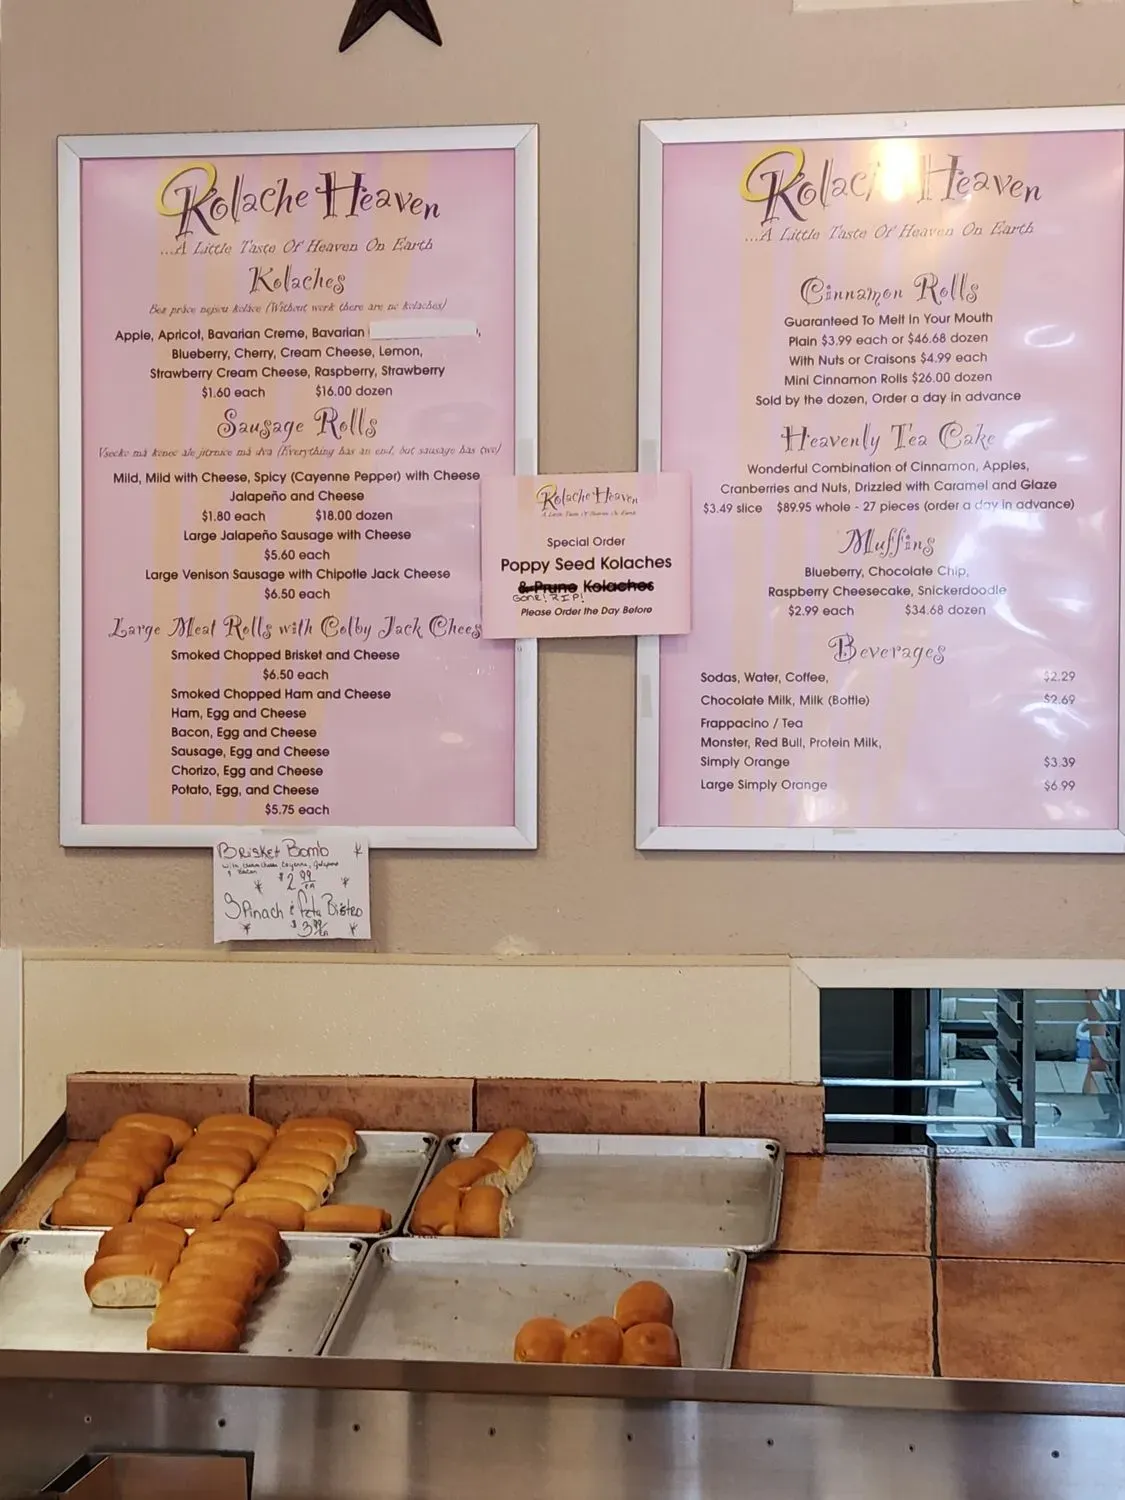 Kolache Heaven
...A Little Taste Of Heaven On Earth
Kolaches
Bez práce nejsou koláce (Without work there are no kolaches)
Apple, Apricot, Bavarian Creme, Bavarian
Blueberry, Cherry, Cream Cheese, Lemon,
Strawberry Cream Cheese, Raspberry, Strawberry
$1.60 each $16.00 dozen
Sausage Rolls
Vsecko má konec ale jitrnice má dva (Everything has an end, but sausage has two)
Mild, Mild with Cheese, Spicy (Cayenne Pepper) with Cheese
Jalapeño and Cheese
$1.80 each $18.00 dozen
Large Jalapeño Sausage with Cheese
$5.60 each
Large Venison Sausage with Chipotle Jack Cheese
$6.50 each
Large Meat Rolls with Colby Jack Chees
Smoked Chopped Brisket and Cheese
$6.50 each
Smoked Chopped Ham and Cheese
Ham, Egg and Cheese
Bacon, Egg and Cheese
Sausage, Egg and Cheese
Chorizo, Egg and Cheese
Potato, Egg, and Cheese
$5.75 each
Brisket Bomb
with Cream Cheese, Cayenne, Jalapeno
& Bacon
$2.99 EA
Spinach & Feta Bistro
$3.99 EA
Kolache Heaven
A Little Taste Of Heaven On Earth
Special Order
Poppy Seed Kolaches
& Prune Kolaches
Gone! RIP!
Please Order the Day Before
Kolache Heaven
...A Little Taste Of Heaven On Earth
Cinnamon Rolls
Guaranteed To Melt In Your Mouth
Plain $3.99 each or $46.68 dozen
With Nuts or Craisons $4.99 each
Mini Cinnamon Rolls $26.00 dozen
Sold by the dozen, Order a day in advance
Heavenly Tea Cake
Wonderful Combination of Cinnamon, Apples,
Cranberries and Nuts, Drizzled with Caramel and Glaze
$3.49 slice $89.95 whole - 27 pieces (order a day in advance)
Muffins
Blueberry, Chocolate Chip,
Raspberry Cheesecake, Snickerdoodle
$2.99 each $34.68 dozen
Beverages
Sodas, Water, Coffee, $2.29
Chocolate Milk, Milk (Bottle) $2.69
Frappacino / Tea
Monster, Red Bull, Protein Milk,
Simply Orange $3.39
Large Simply Orange $6.99